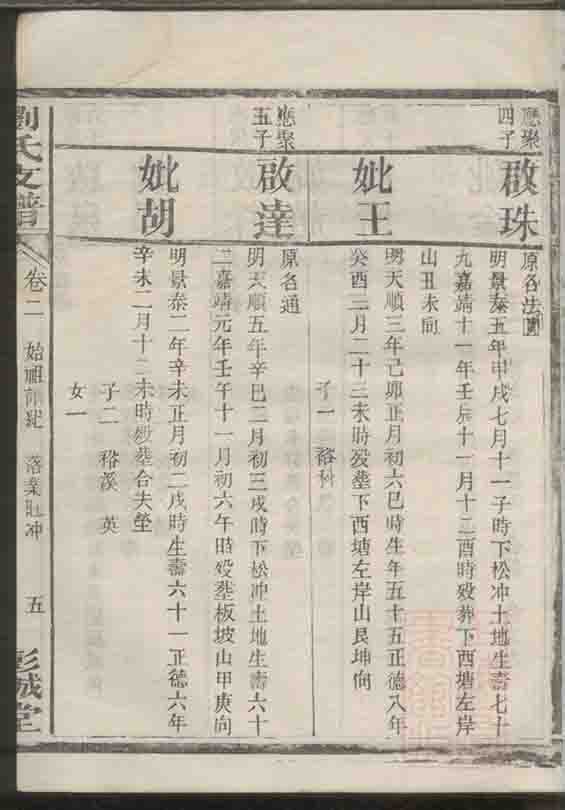 應聚
四子
啟珠
原名法
明景泰五年甲戌七月十一子時下松冲土地生壽七十
九嘉靖十一年壬辰十一月十二酉時歿葬下西塘左岸
山丑未向
妣王
明天順三年己卯正月初六巳時生年五十五正德八年
癸酉三月二十三未時歿塟下西塘左岸山艮坤向
子一 裕科
應聚
五子
啟達
原名通
明天順五年辛巳二月初三戌時下松冲土地生壽六十
二嘉靖元年壬午十一月初六午時歿塟板坡山甲庚向
妣胡
明景泰二年辛未正月初二戌時生壽六十一正德六年
辛未二月十二未時歿塟合夫塋
子二 裕溪 英
女一
劉氏支譜
卷二 始祖 紀 落業 冲 五
彭城堂